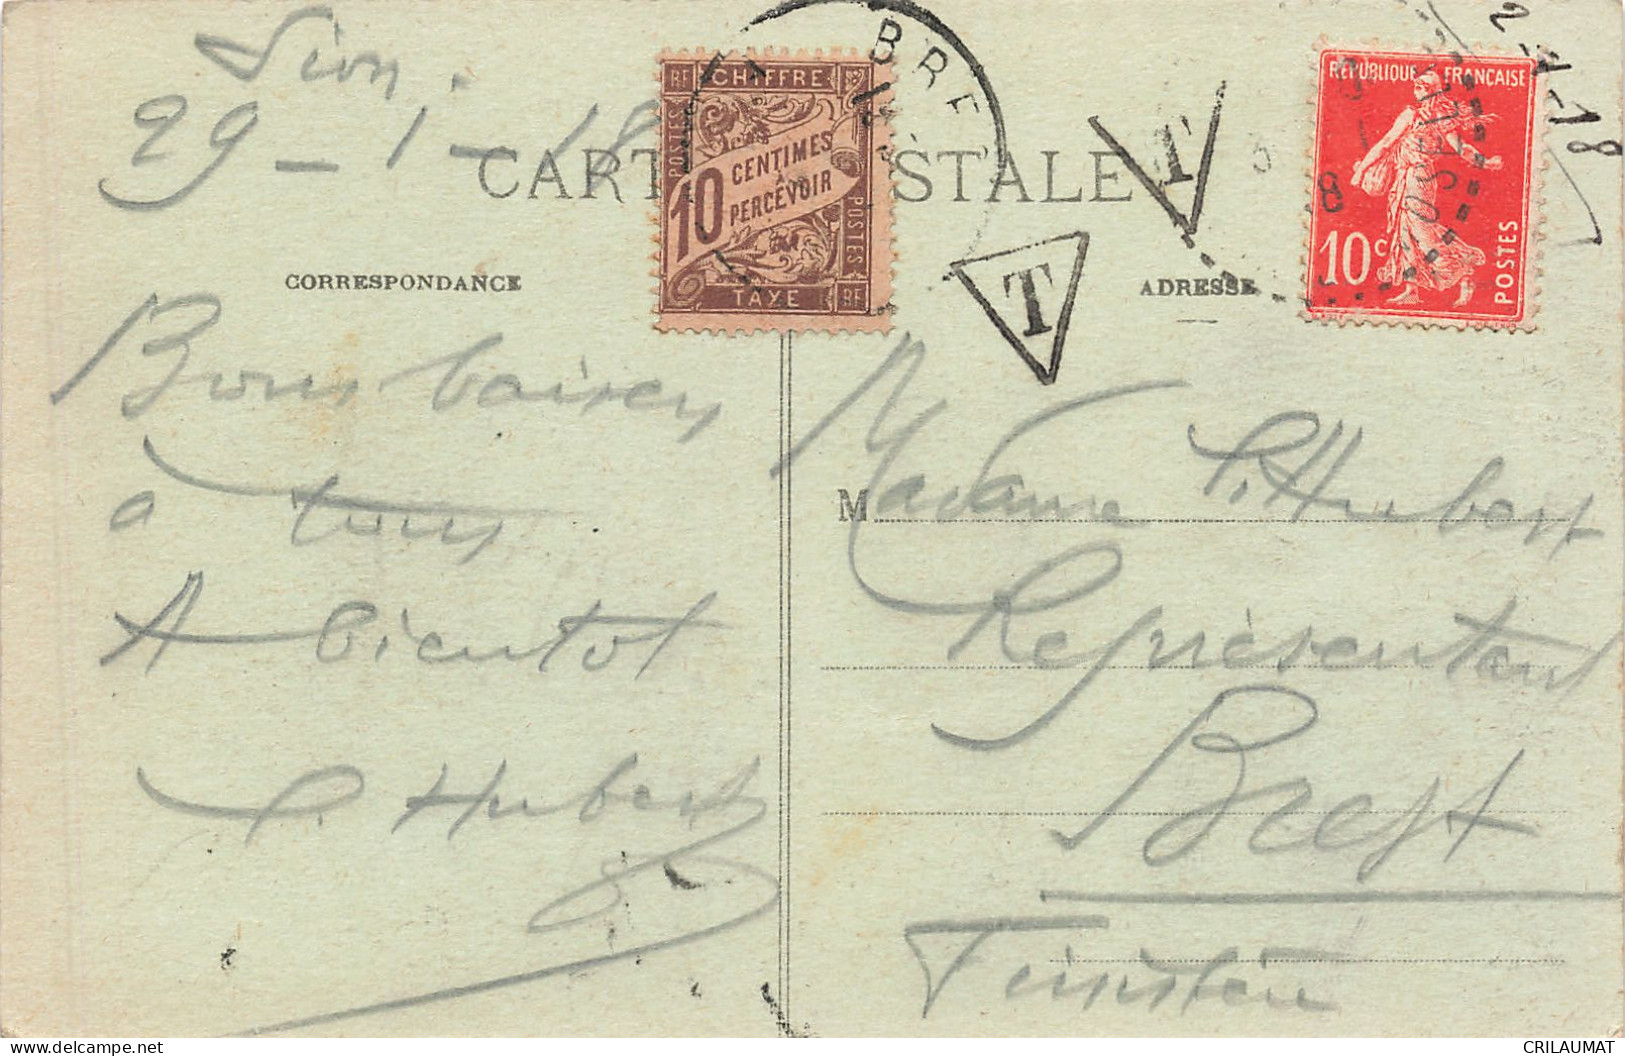 Sion
29 - 1 - 18
CARTE POSTALE
CORRESPONDANCE
ADRESSE
RF CHIFFRE
POSTES
10 CENTIMES
À
PERCEVOIR
POSTES
TAXE RF
BRE
T
T
RÉPUBLIQUE FRANÇAISE
10c
POSTES
2-1-18
Bons baisers
à tous
A bientot
P. Hubert
M
Madame P. Hubert
Représentant
Brest
Finistère
CRILAUMAT